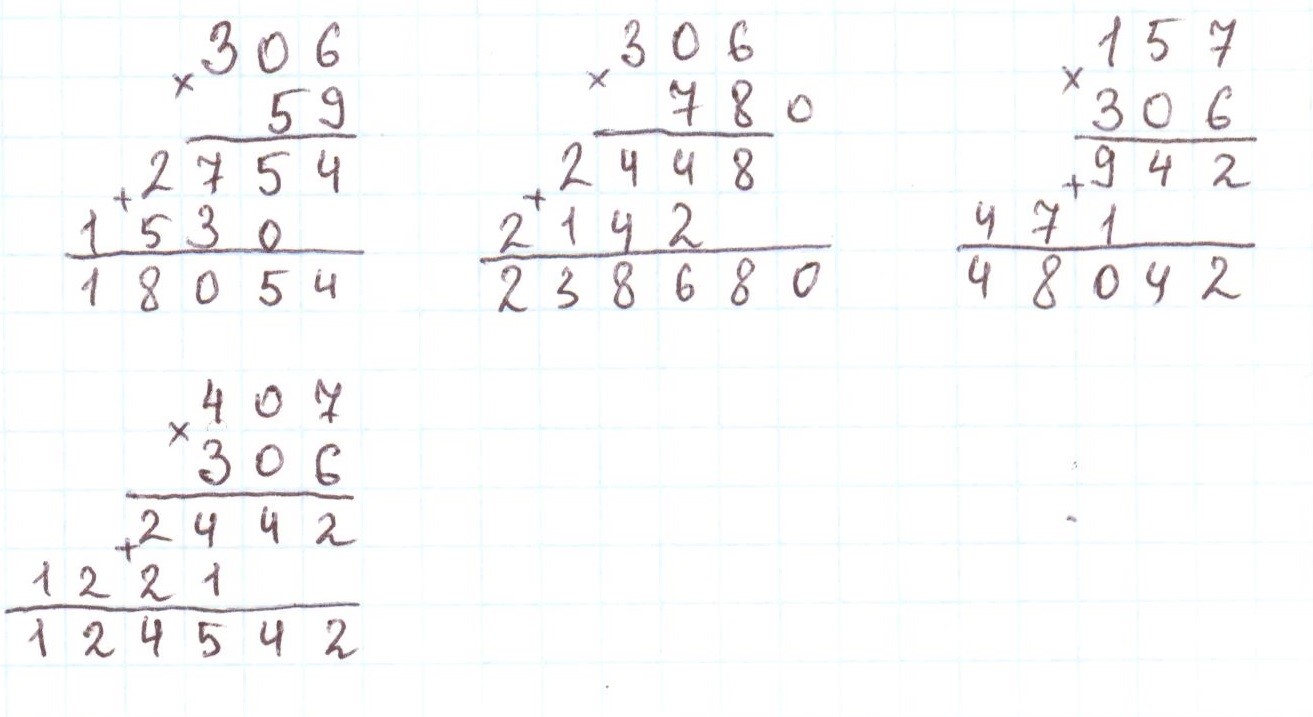 306
× 59
2754
+ 1530
18054
306
× 780
2448
+ 2142
238680
157
× 306
942
+ 471
48042
407
× 306
2442
+ 1221
124542